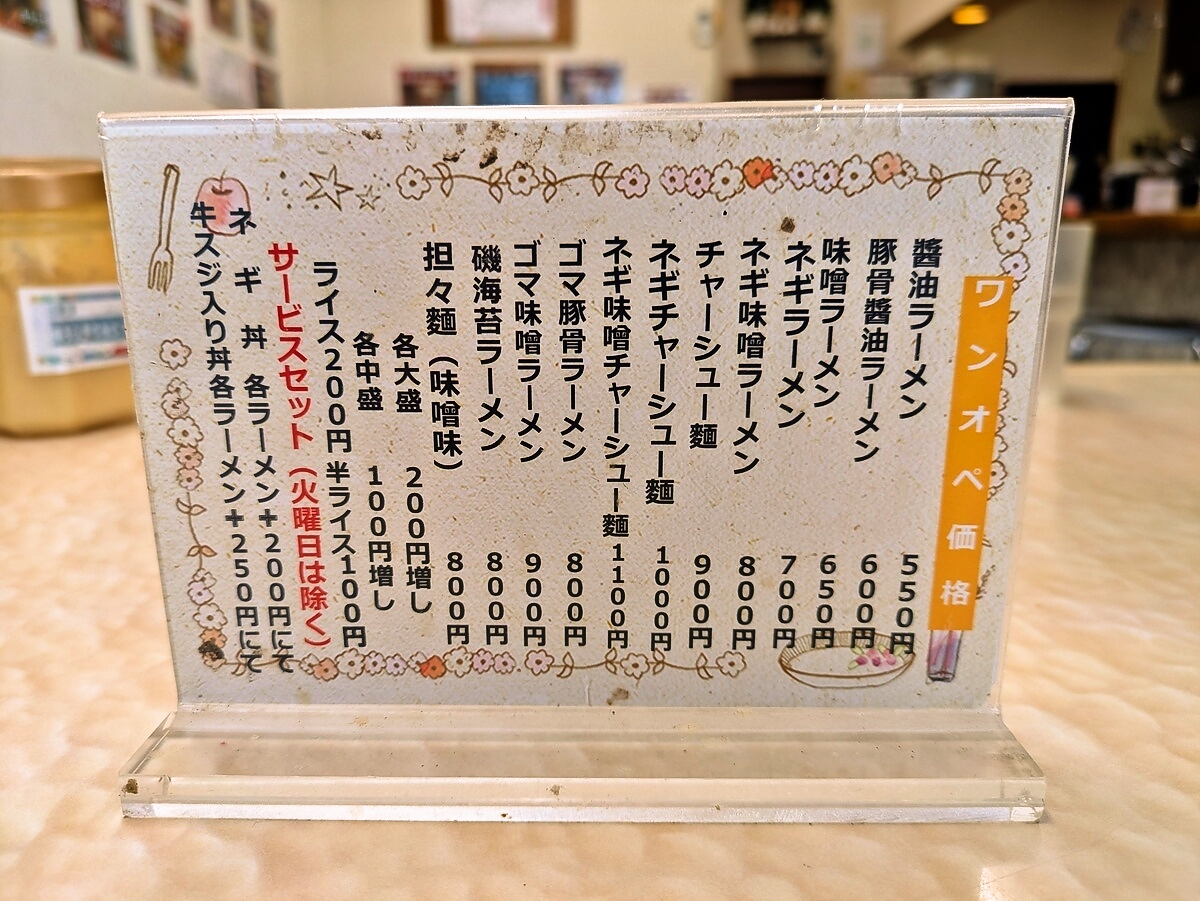 ワンオペ価格
醬油ラーメン 550円
豚骨醬油ラーメン 600円
味噌ラーメン 650円
ネギラーメン 700円
ネギ味噌ラーメン 800円
チャーシュー麵 900円
ネギチャーシュー麵 1000円
ネギ味噌チャーシュー麵 1100円
ゴマ豚骨ラーメン 800円
ゴマ味噌ラーメン 900円
磯海苔ラーメン 800円
担々麵（味噌味） 800円
各大盛 200円増し
各中盛 100円増し
ライス200円 半ライス100円
サービスセット（火曜日は除く）
ネギ丼 各ラーメン+200円にて
牛スジ入り丼各ラーメン+250円にて